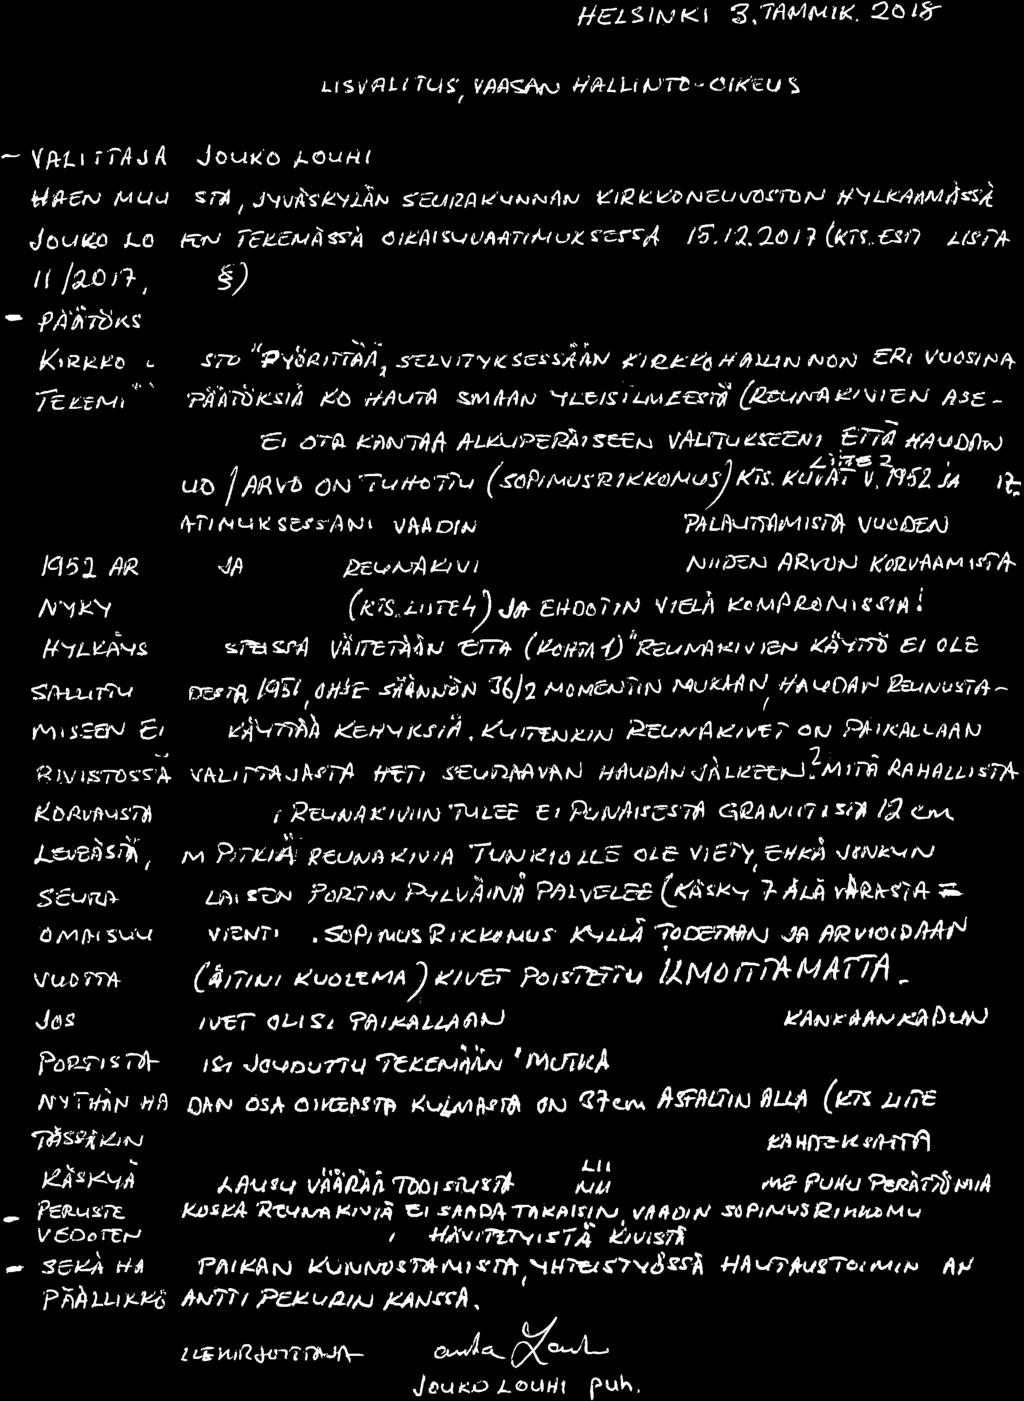 HELSINKI 3.TAMMIK. 2018
LISVALITUS, VAASAN HALLINTO-OIKEUS
- VALITTAJA JOUKO LOUHI
HAEN MUU STA, JYVÄSKYLÄN SEURAKUNNAN KIRKKONEUVOSTON HYLKÄÄMÄSSÄ
JOUKO LO TEKEMÄSSÄ OIKAISUVAATIMUKSESSA 15.12.2017 (KTS. ESI LISTA
11/2017, §)
- PÄÄTÖKS
KIRKKO STO "PYÖRITTÄÄ, SELVITYKSESSÄÄN KIRKKOHALLINNON ERI VUOSINA
TEKEMI" PÄÄTÖKSIÄ KO HAUTA SMAAN YLEISILMEESTÄ (REUNAKIVIEN ASE-
EI OTA KANTAA ALKUPERÄISEEN VALITUKSEENI ETTÄ HAUDAN
LIITE 2
UO / ARVO ON TUHOTTU (SOPIMUSRIKKOMUS) KTS. KUVAT V. 1952 JA
ATIMUKSESSANI VAADIN PALAUTTAMISTA VUODEN
1952 AR JA REUNAKIVI NIIDEN ARVON KORVAAMISTA
NYKY (KTS. LIITE 4) JA EHDOTIN VIELÄ KOMPROMISSIA!
HYLKÄYS STEISSA VÄITETÄÄN ETTÄ (KOHTA 1) "REUNAKIVIEN KÄYTTÖ EI OLE
SALLITTU DESTA 1951, OHJE SÄÄNNÖN 36/2 MOMENTIN MUKAAN, HAUDAN REUNUSTA-
MISEEN EI KÄYTTÄÄ KEHYKSIÄ. KUITENKIN REUNAKIVET ON PAIKALLAAN
RIVISTÖSSÄ VALITTAJASTA HETI SEURAAVAN HAUDAN JÄLKEEN? MITÄ RAHALLISTA
KORVAUSTA REUNAKIVIIN TULEE EI PUNAISESTA GRANIITISTA 12 cm
LEVEÄSTÄ, M PITKIÄ REUNAKIVIÄ TUNKIOLLE OLE VIETY, EHKÄ JONKUN
SEURA LAISEN PORTIN PYLVÄINÄ PALVELEE (KÄSKY 7 ÄLÄ VARASTA =
OMAISUU VIENTI. SOPIMUSRIKKOMUS KYLLÄ TODETAAN JA ARVIOIDAAN
VUOTTA (ÄITINI KUOLEMA) KIVET POISTETTU ILMOITTAMATTA.
JOS IVET OLISI PAIKALLAAN KANKAANKADUN
PORTISTA ISI JOUDUTTU TEKEMÄÄN 'MUTKA
NYTHÄN HA DAN OSA OIKEASTA KULMASTA ON 37cm ASFALTIN ALLA (KTS LIITE
TÄSSÄKIN KAHTEKSATTA
KÄSKYÄ LAUSU VÄÄRÄÄ TODISTUSTA LII ME PUHU PERÄTTÖMIÄ
- PERUSTE KOSKA REUNAKIVIÄ EI SAADA TAKAISIN, VAADIN SOPIMUSRIKKOMU
VEDOTEN HÄVITETYISTÄ KIVISTÄ
- SEKÄ HA PAIKAN KUNNOSTAMISTA, YHTEISTYÖSSÄ HAUTAUSTOIMIN AN
PÄÄLLIKKÖ ANTTI PEKURIN KANSSA.
LLEKIRJOITTAJA
JOUKO LOUHI puh.